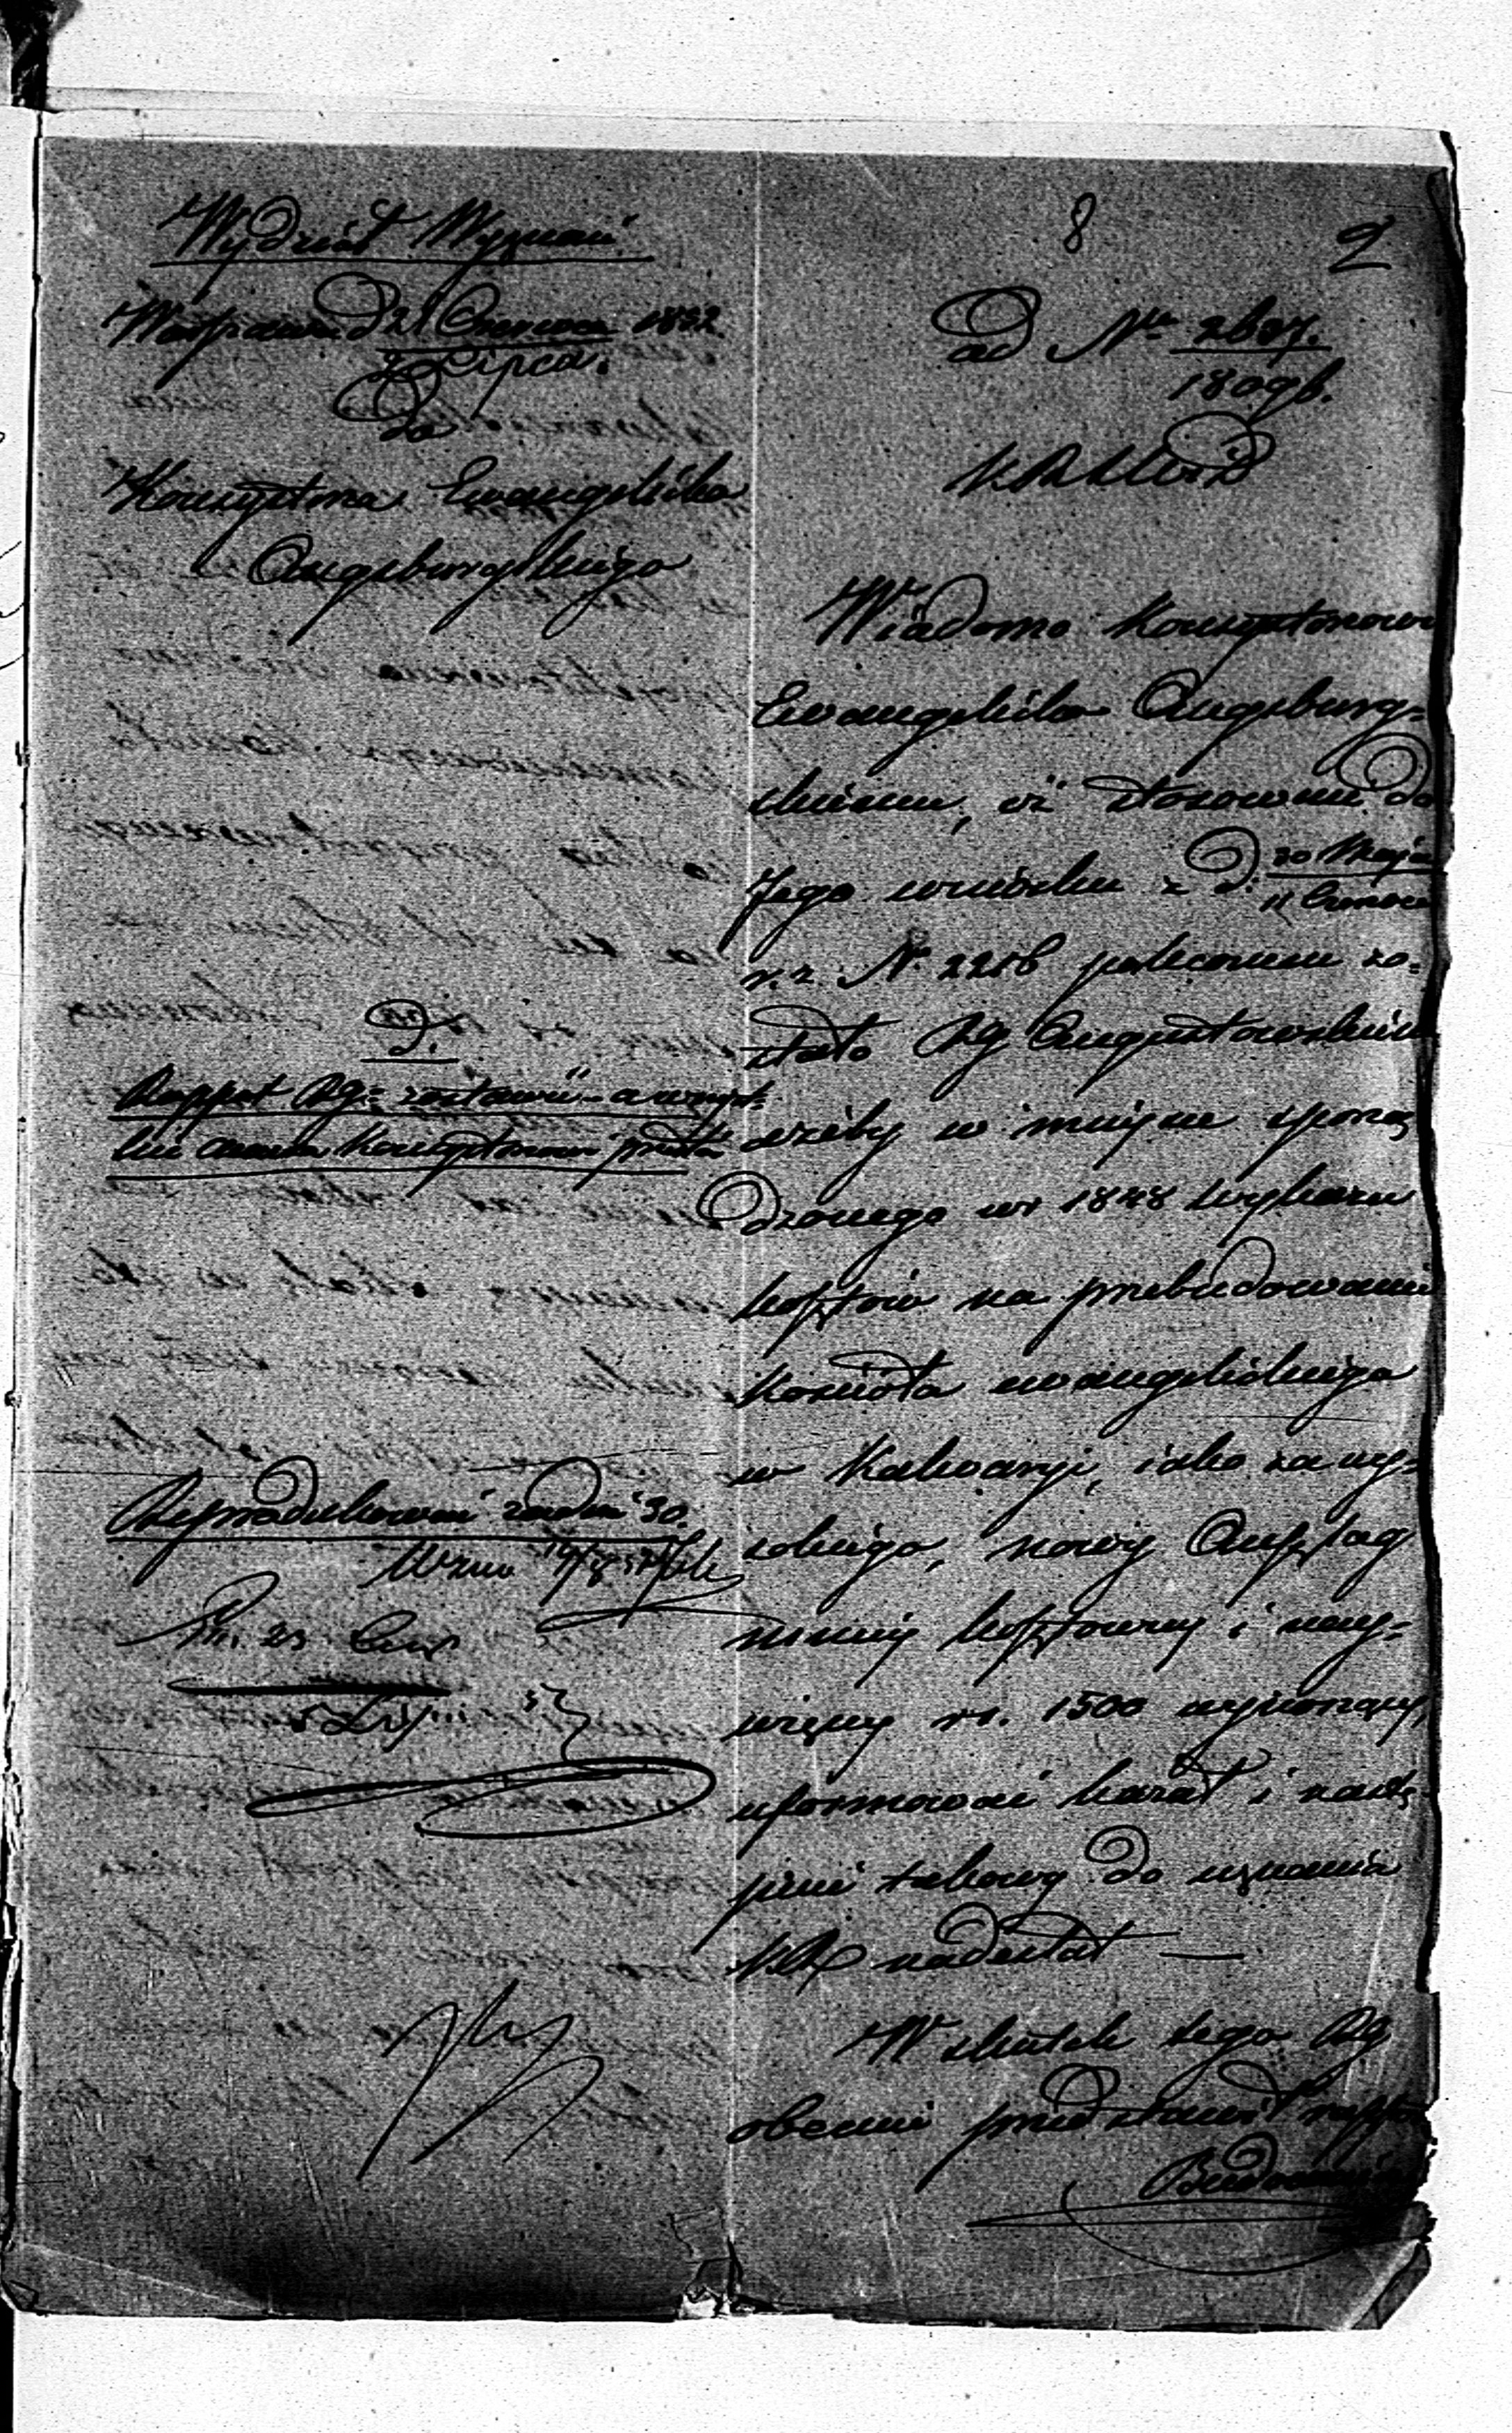 Wydział Wyznań
Warszawa d 21 Czerwca 1852.
Lipca.
Do
Konsystorza Ewangelicko
Augsburgskiego
D.
Rapport RG. zostawić a wszyst-
kie Konsystorzowi
Reprodukować za dni 30.
5 Lip
8
2
ad Nr 2627.
18096.
KRSWiD
Wiadomo Konsystorzowi
Ewangelicko Augsburg-
skiemu, iż stosownie do
Jego wniosku z d. 30 Maja
11 Czerwca
r. z. N. 2256 polecone zo-
stało RG Augustowskiemu
ażeby w miejsce sporzą
dzonego w r 1848 wykazu
kosztów na przebudowanie
Kościoła ewangelickiego
w Kalwaryi, iako za wy-
sokiego, nowy Anszlag
mniej kosztowny i nay-
więcey rs. 1500 wynoszący,
uformować kazał i nastę
pnie takowy do uznania
KR nadesłał —
W skutek tego RG
obecnie przedstawił